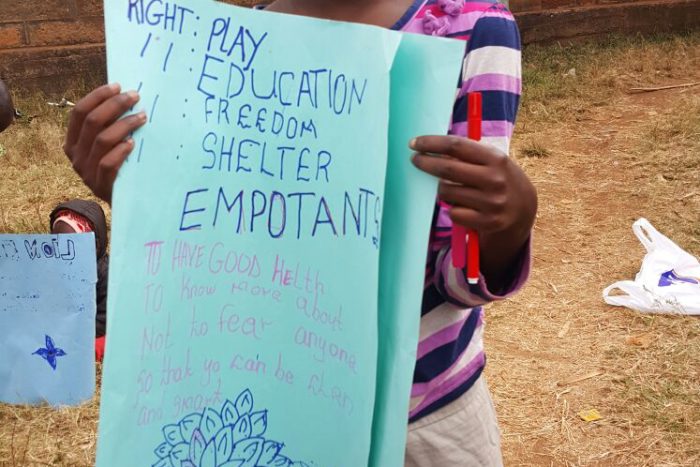 RIGHT: PLAY
" : EDUCATION
" : FREEDOM
" : SHELTER
EMPOTANTS
TO HAVE GOOD HEltH
TO Know More about
Not to fear anyone
so that yo can be clean
and smart
LION